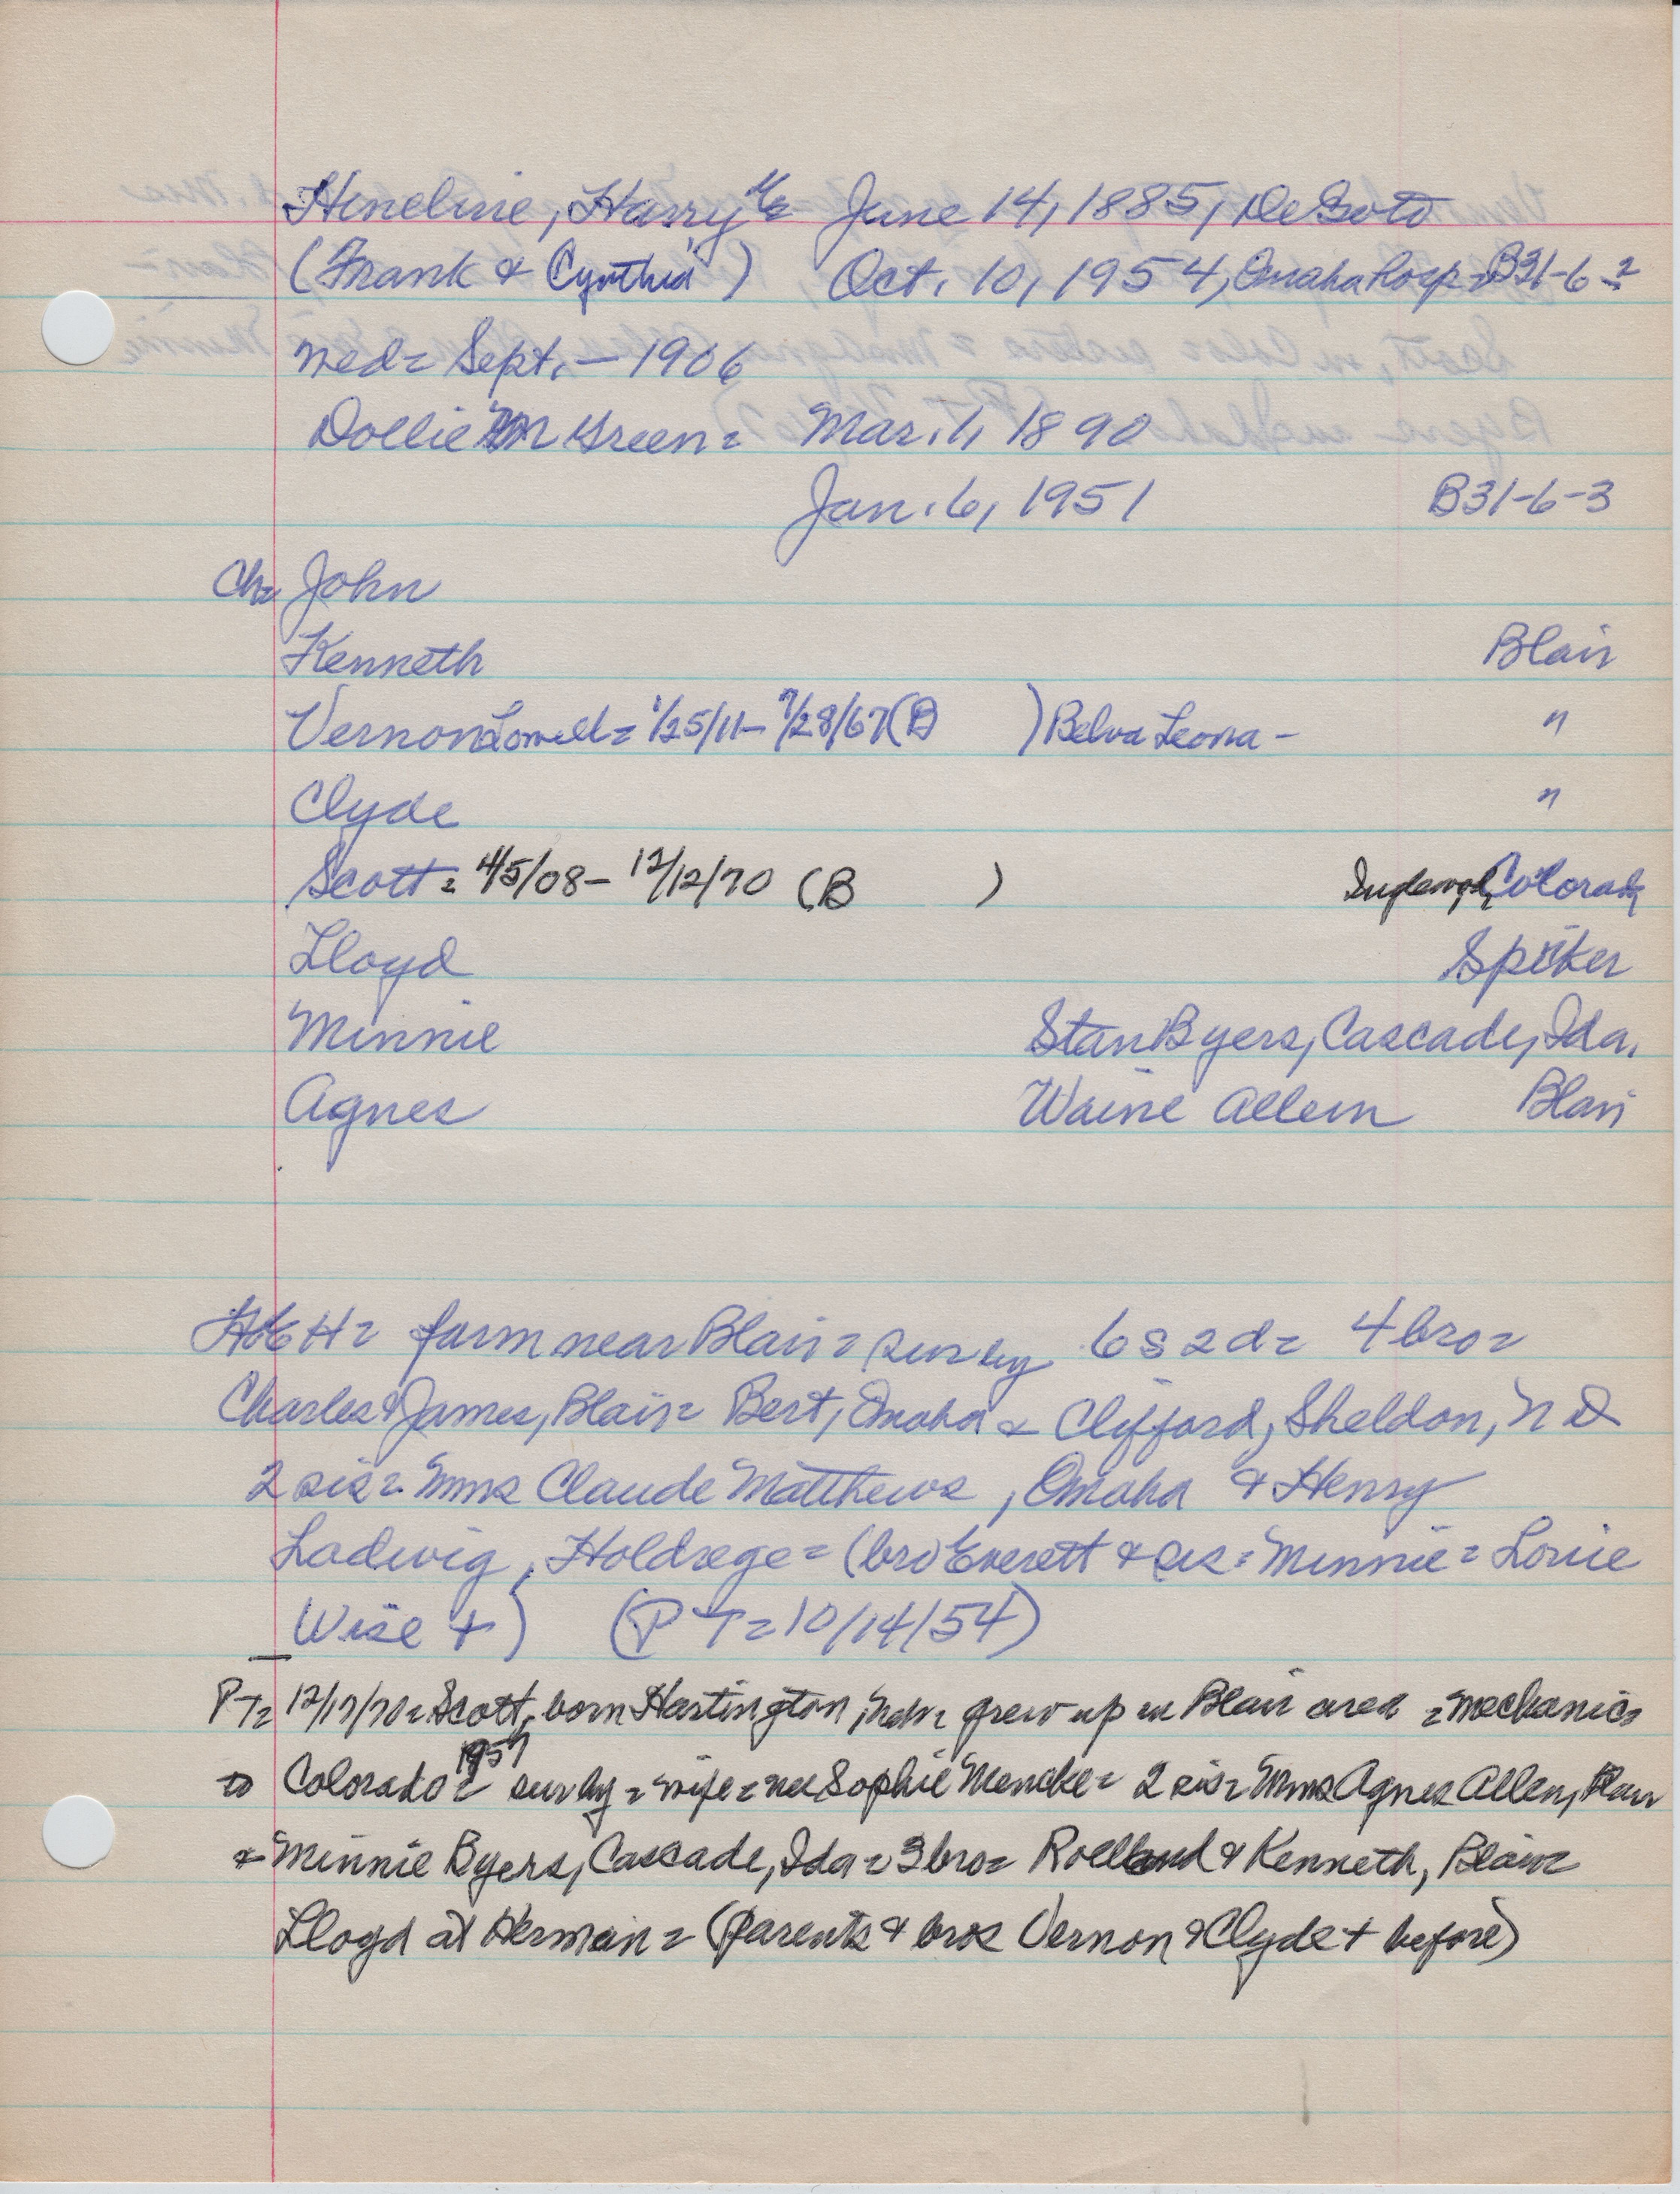 Hineline, Harry E= June 14, 1885, DeSoto
(Frank & Cynthia) Oct. 10, 1954, Omaha hosp= B31-6-2
med= Sept. - 1906
Dollie M Green= Mar. 1, 1890
Jan. 6, 1951 B31-6-3
Ch= John
Kenneth Blair
Vernon Lowell= 1/25/11- 7/28/67 (B ) Belva Leona - "
Clyde "
Scott= 4/5/08- 12/12/70 (B ) Englewood, Colorado
Lloyd Spiker
Minnie Stan Byers, Cascade, Ida.
Agnes Waine Allen Blair
HEH= farm near Blair= sur by 6s 2d= 4 bro=
Charles & James, Blair= Bert, Omaha & Clifford, Sheldon, ND
2 sis= Mms Claude Matthews, Omaha & Henry
Ladwig, Holdrege= (bro Everett & sis= Minnie= Louie
Wise +) (PT=10/14/54)
PT= 12/17/70= Scott, born Hartington, Neb= grew up in Blair area =mechanic=
to Colorado= 1957 sur by= wife= nee Sophie Mencke= 2 sis= Mms Agnes Allen, Blair
& Minnie Byers, Cascade, Ida= 3 bro= Rolland & Kenneth, Blair=
Lloyd at Herman= (parents & bros Vernon & Clyde + before)